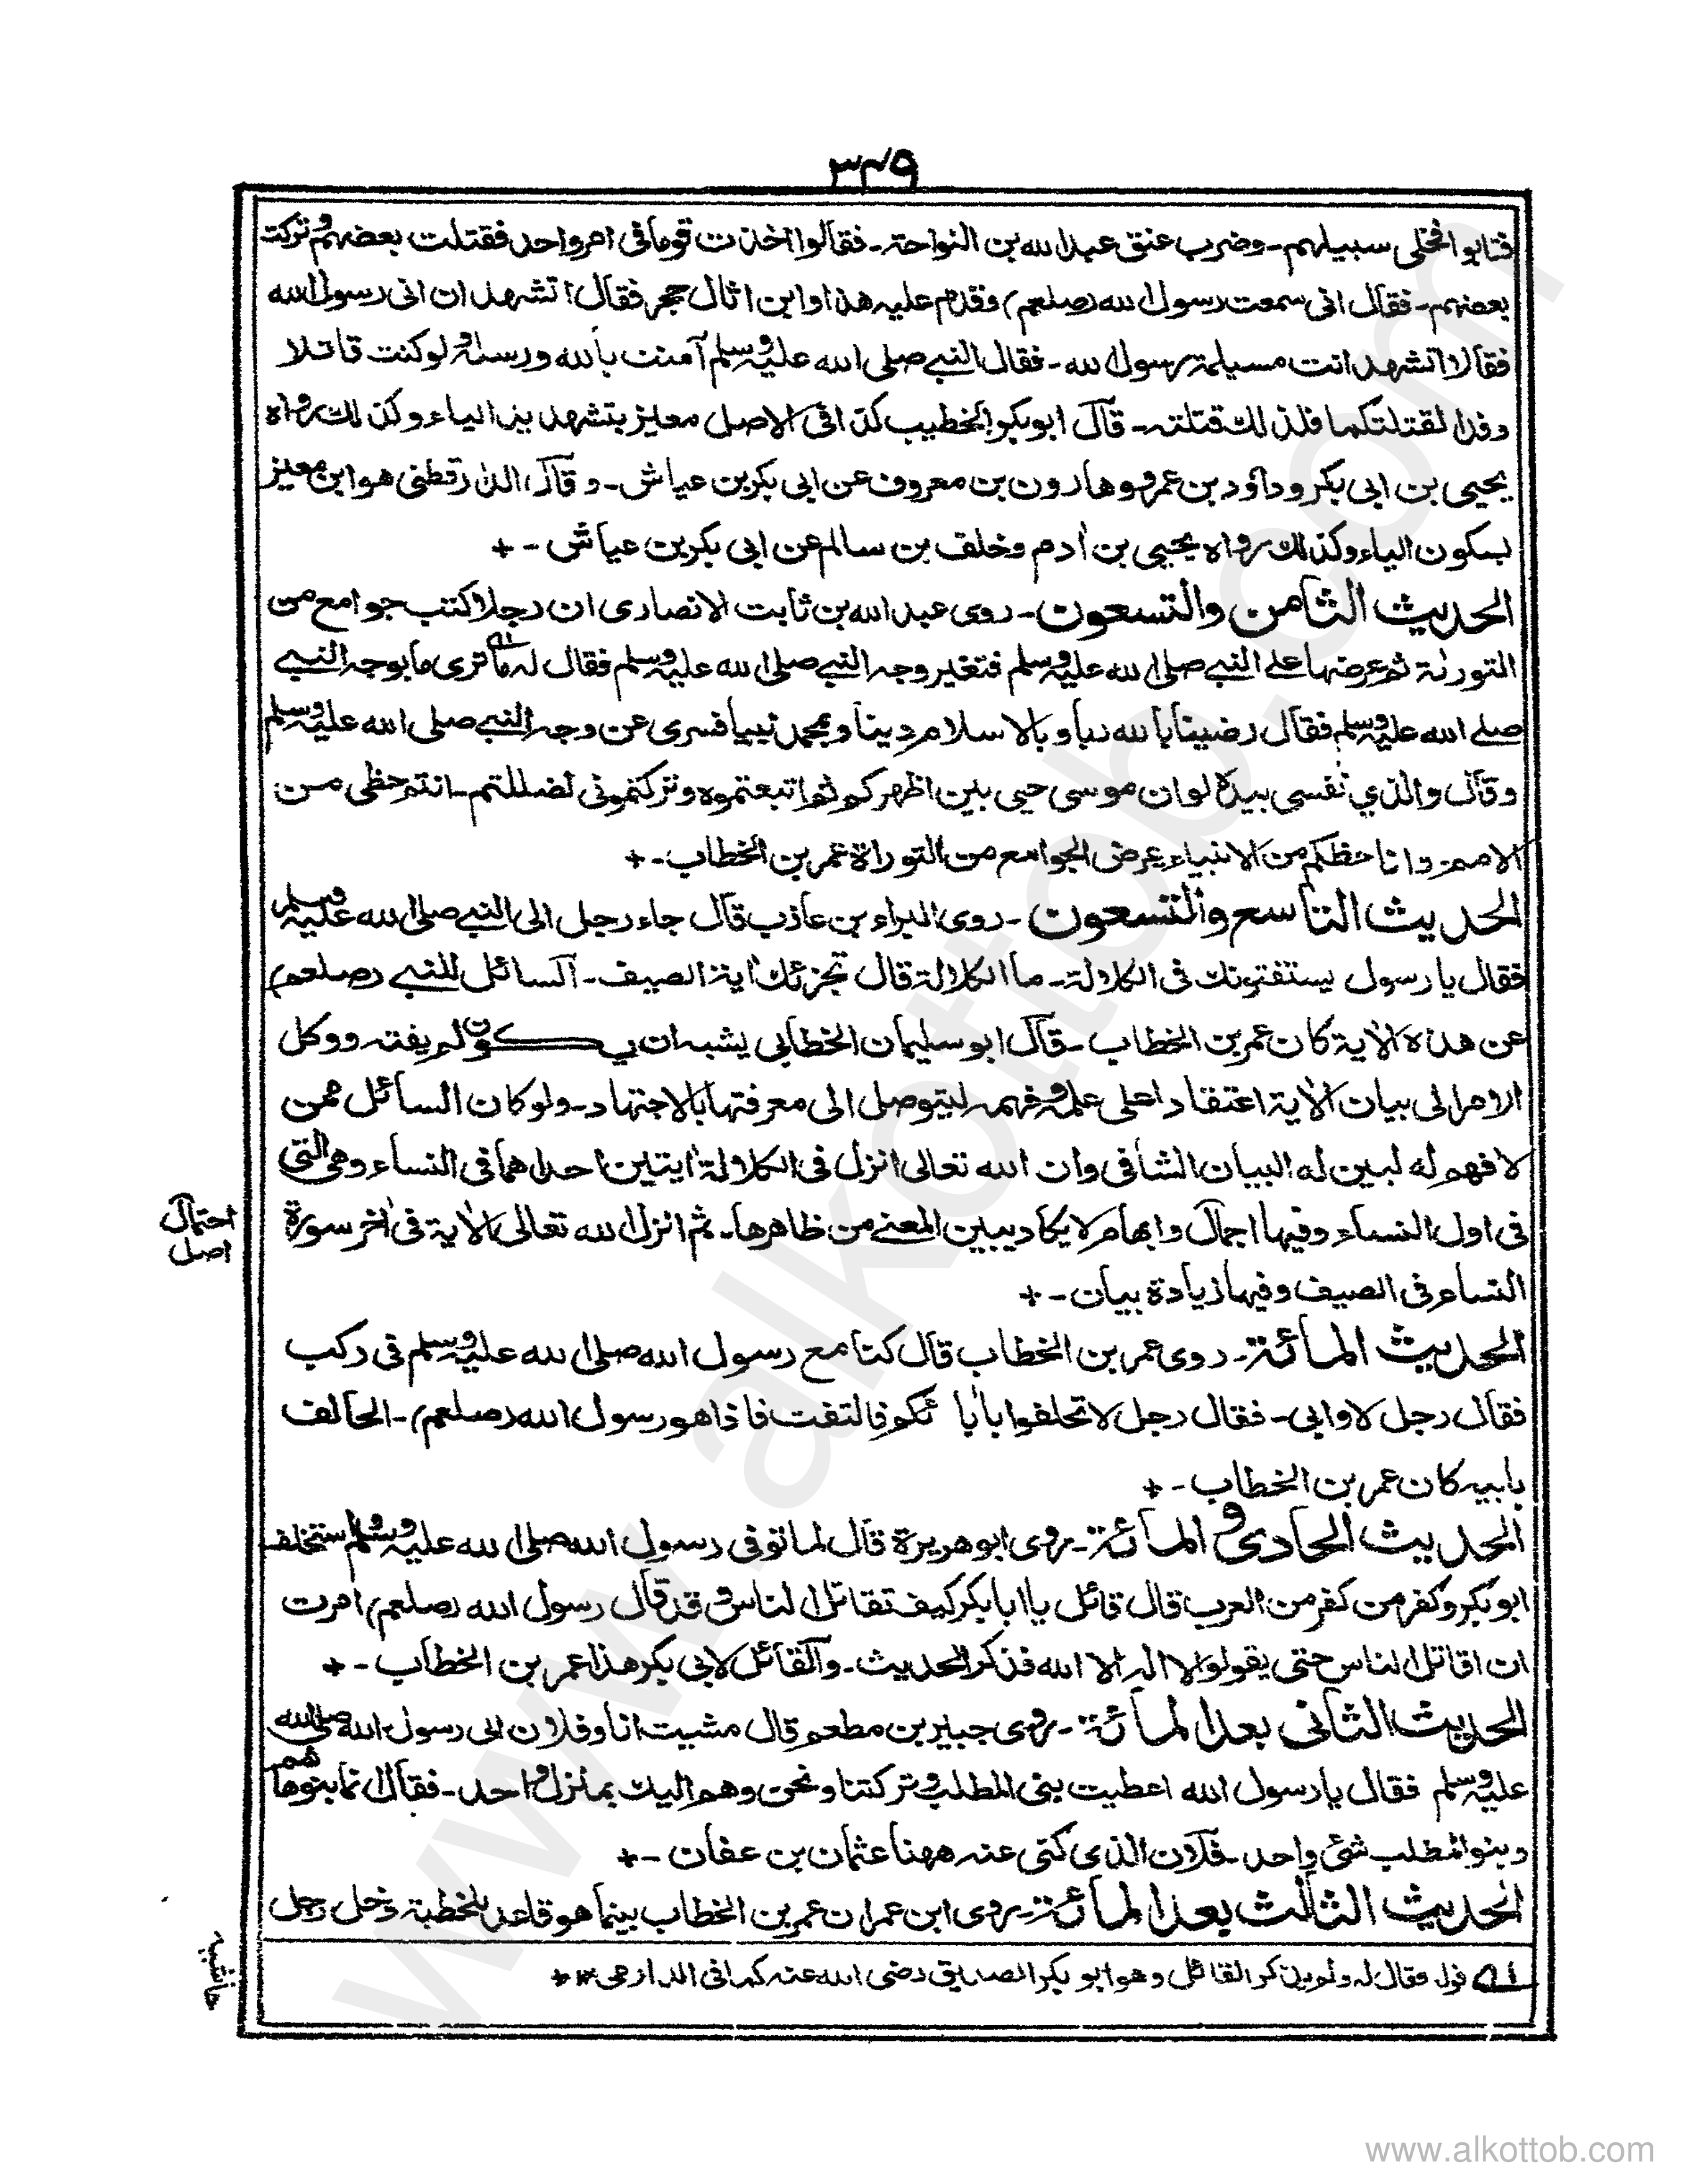 ٣٤٩
فتابوا فخلى سبيلهم - وضرب عنق عبد الله بن النواحة - فقالوا أخذت قوما فى امر واحد فقتلت بعضهم وتركت
بعضهم - فقال انى سمعت رسول الله (صلعم) وقدم عليه هذا وابن اثال حجر فقال اتشهد ان انى رسول الله
فقالا اتشهد انت مسيلمة رسول الله - فقال النبى صلى الله عليه وسلم آمنت بالله ورسله ولو كنت قاتلا
وفدا لقتلتكما فلذلك قتلته - قال ابو بكر الخطيب كذا فى الاصل معيز بتشهد يد الياء وكذلك رواه
يحيى بن ابى بكر وداؤد بن عمرو وهارون بن معروف عن ابى بكر بن عياش - وقال الدارقطنى هو ابن معيز
بسكون الياء وكذلك رواه يحيى بن اٰدم وخلف بن سالم عن ابى بكر بن عياش - +
الحديث الثامن والتسعون - روى عبد الله بن ثابت الانصارى ان رجلا كتب جوامع من
التورٰىة ثم عرضها على النبى صلى الله عليه وسلم فتغير وجه النبى صلى الله عليه وسلم فقال له ما ترى ما بوجه النبى
صلے الله عليه وسلم فقال رضينا بالله ربا وبالاسلام دينا وبمحمد نبيا فسرى عن وجه النبى صلى الله عليه وسلم
وقال والذي نفسى بيده لو ان موسى حيى بين اظهركم ثم اتبعتموه وتركتمونى لضللتم - انتم حظى من
الامم - وانا حظكم من الانبياء عرض الجوامع من التوراة عمر بن الخطاب - +
الحديث التاسع والتسعون - روى البراء بن عاذب قال جاء رجل الى النبى صلى الله عليه وسلم
فقال يا رسول يستفتونك فى الكلالة - ما الكلالة قال تجزئك اٰية الصيف - السائل للنبى (صلعم)
عن هذه الاٰية كان عمر بن الخطاب - قال ابو سليمان الخطابى يشبه ان يكون لم يفته ووكل
الامر الى بيان الاٰية اعتقادا على علمه وفهمه ليتوصل الى معرفتها بالاجتهاد - ولو كان السائل ممن
لا فهم له لبين له البيان الشافى وان الله تعالى انزل فى الكلالة اٰيتين احداهما فى النساء وهى التى
فى اول النساء وفيها اجمال وابهام لا يكاد يبين المعنى من ظاهرها - ثم انزل الله تعالى الاٰية فى اٰخر سورة
احتمال
اصل
النساء فى الصيف وفيها زيادة بيان - +
الحديث المائة - روى عمر بن الخطاب قال كنا مع رسول الله صلى الله عليه وسلم فى ركب
فقال رجل لا وابى - فقال رجل لا تحلفوا باٰبائكم فالتفت فاذا هو رسول الله (صلعم) - الحالف
بابيه كان عمر بن الخطاب - +
الحديث الحادى والمائة - روى ابو هريرة قال لما توفى رسول الله صلى الله عليه وسلم واستخلف
ابو بكر وكفر من كفر من العرب قال قائل يا ابا بكر كيف تقاتل الناس وقد قال رسول الله (صلعم) امرت
ان اقاتل الناس حتى يقولوا لا اله الا الله فذكر الحديث - والقائل لابى بكر هذا عمر بن الخطاب - +
الحديث الثانى بعد المائة - روى جبير بن مطعم قال مشيت انا وفلان الى رسول الله صلى الله
عليه وسلم فقال يا رسول الله اعطيت بنى المطلب وتركتنا ونحن وهم اليك بمنزل واحد - فقال انما بنو هاشم
وبنو المطلب شئ واحد - فلان الذى كنى عنه ههنا عثمان بن عفان - +
الحديث الثالث بعد المائة - روى ابن عمر ان عمر بن الخطاب بينما هو قاعد للخطبة دخل رجل
له قوله فقال له ولم يذكر القائل وهو ابو بكر الصديق رضى الله عنه كما فى الدارمى ++
حاشيه
www.alkottob.com
www.alkottob.com